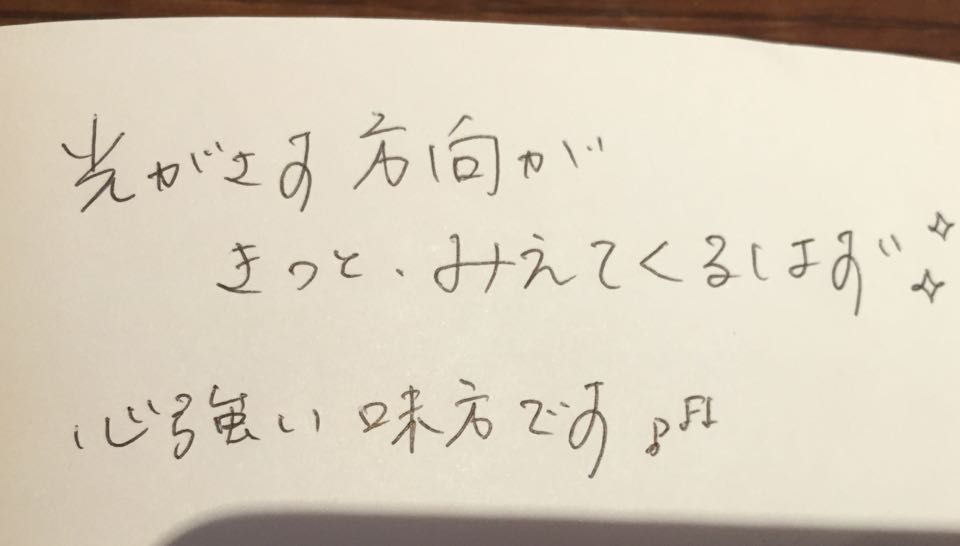 光がさす方向が
きっと、みえてくるはず✧✧
心強い味方です♪♫